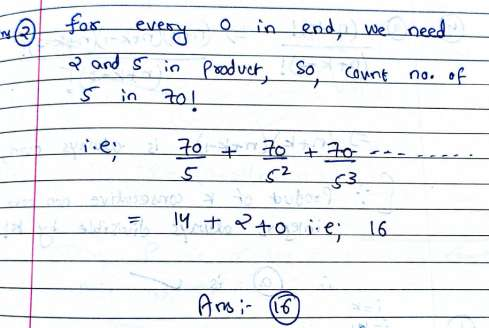 Ans ② for every 0 in end, we need
2 and 5 in product, So, count no. of
5 in 70!
i.e; 70/5 + 70/5² + 70/5³ --- ------
= 14 + 2+0 i.e; 16
Ans :- ⑯